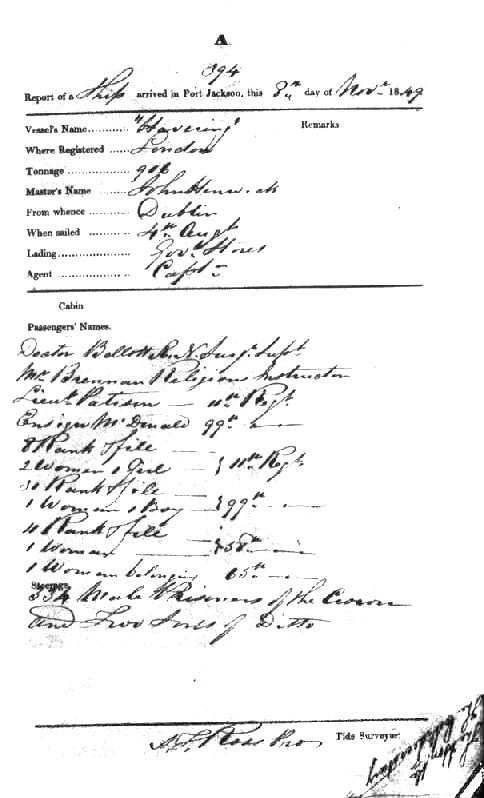 A
394
Report of a Ship arrived in Port Jackson, this 8th day of Novr 1849
Vessel's Name "Havering" Remarks
Where Registered London
Tonnage
Master's Name John
From whence Dublin
When sailed 4th Augt
Lading Govt Stores
Agent Captn
Cabin
Passengers' Names.
Doctor Bellott R.N. Surgn Supt
Mr Brennan Religious Instructor
Lieut Patison — 11th Regt
Ensign McDonald 99th
8 Rank & file
2 Women 1 Girl } 11th Regt
Rank & file
1 Woman 1 Boy } 99th
4 Rank & file
1 Woman } 58th
1 Woman belonging 65th
Steerage.
334 Male Prisoners of the Crown
and Two Sons of Ditto
Ross Pro Tide Surveyor